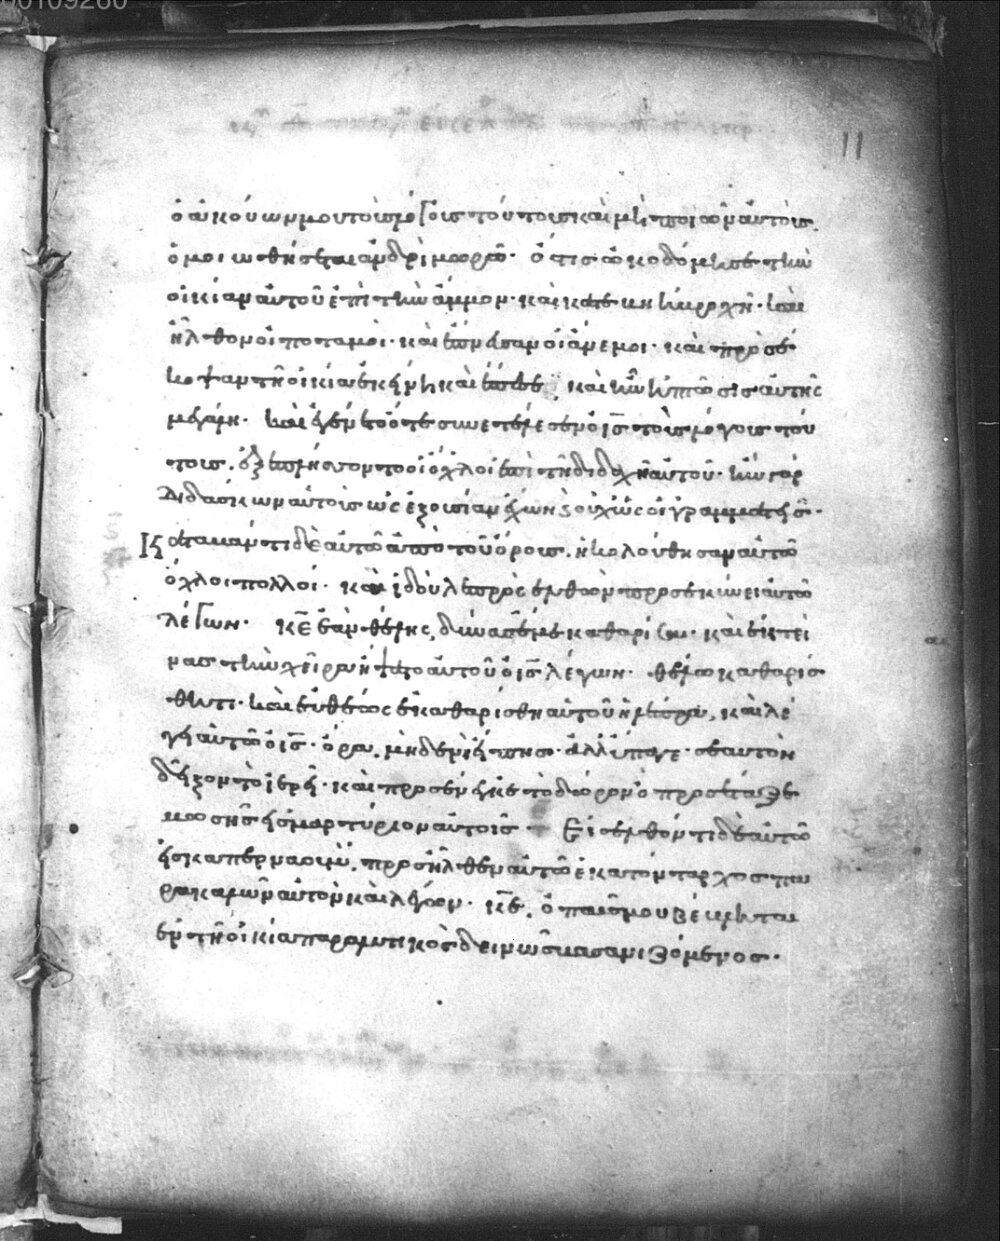 00109260
11
ὁ ἀκούων μου τοὺς λόγους τούτους καὶ μὴ ποιῶν αὐτοὺς.
ὁμοιωθήσεται ἀνδρὶ μωρῶ· ὅστις ὠκοδόμησε τὴν
οἰκίαν αὐτοῦ ἐπὶ τὴν ἄμμον· καὶ κατέβη ἡ βροχὴ· καὶ
ἦλθον οἱ ποταμοὶ· καὶ ἔπνευσαν οἱ ἄνεμοι· καὶ προσέ
κοψαν τῆ οἰκία ἐκείνη καὶ ἔπεσε, καὶ ἦν ἡ πτῶσις αὐτῆς
μεγάλη· καὶ ἐγένετο ὅτε συνετέλεσεν ὁ ις τοὺς λόγους τού
τους. ἐξεπλήσσοντο οἱ ὄχλοι ἐπὶ τῆ διδαχῆ αὐτοῦ· ἦν γὰρ
διδάσκων αὐτοὺς ὡς ἐξουσίαν ἔχων ϗ οὐχ ὡς οἱ γραμματεῖς·
Καταβάντι δὲ αὐτῶ ἀπὸ τοῦ ὄρους. ἠκολούθησαν αὐτῶ
ὄχλοι πολλοί· καὶ ἰδοὺ λεπρὸς ἐλθὼν προσεκύνει αὐτῶ
λέγων· κε ἐὰν θέλης, δύνασαί με καθαρίσαι· καὶ ἐκτεί
νας τὴν χεῖρα ἥψατο αὐτοῦ ὁ ις λέγων· θέλω καθαρίσ
θητι· καὶ εὐθέως ἐκαθαρίσθη αὐτοῦ ἡ λέπρα, καὶ λέ
γει αὐτῶ ὁ ις· ὅρα, μηδενὶ εἴπης· ἀλλ' ὕπαγε· σεαυτὸν
δεῖξον τὸ ἱερεῖ· καὶ προσένεγκε τὸ δῶρον ὃ προσέταξε
μωσῆς εἰς μαρτύριον αὐτοῖς Εἰσελθόντι δὲ αὐτῶ
εἰς καπερναούμ, προσῆλθεν αὐτῶ ἑκατόνταρχος πα
ρακαλῶν αὐτὸν καὶ λέγων· κε, ὁ παῖς μου βέβληται
ἐν τῆ οἰκία παραλυτικὸς δεινῶς βασανιζόμενος·